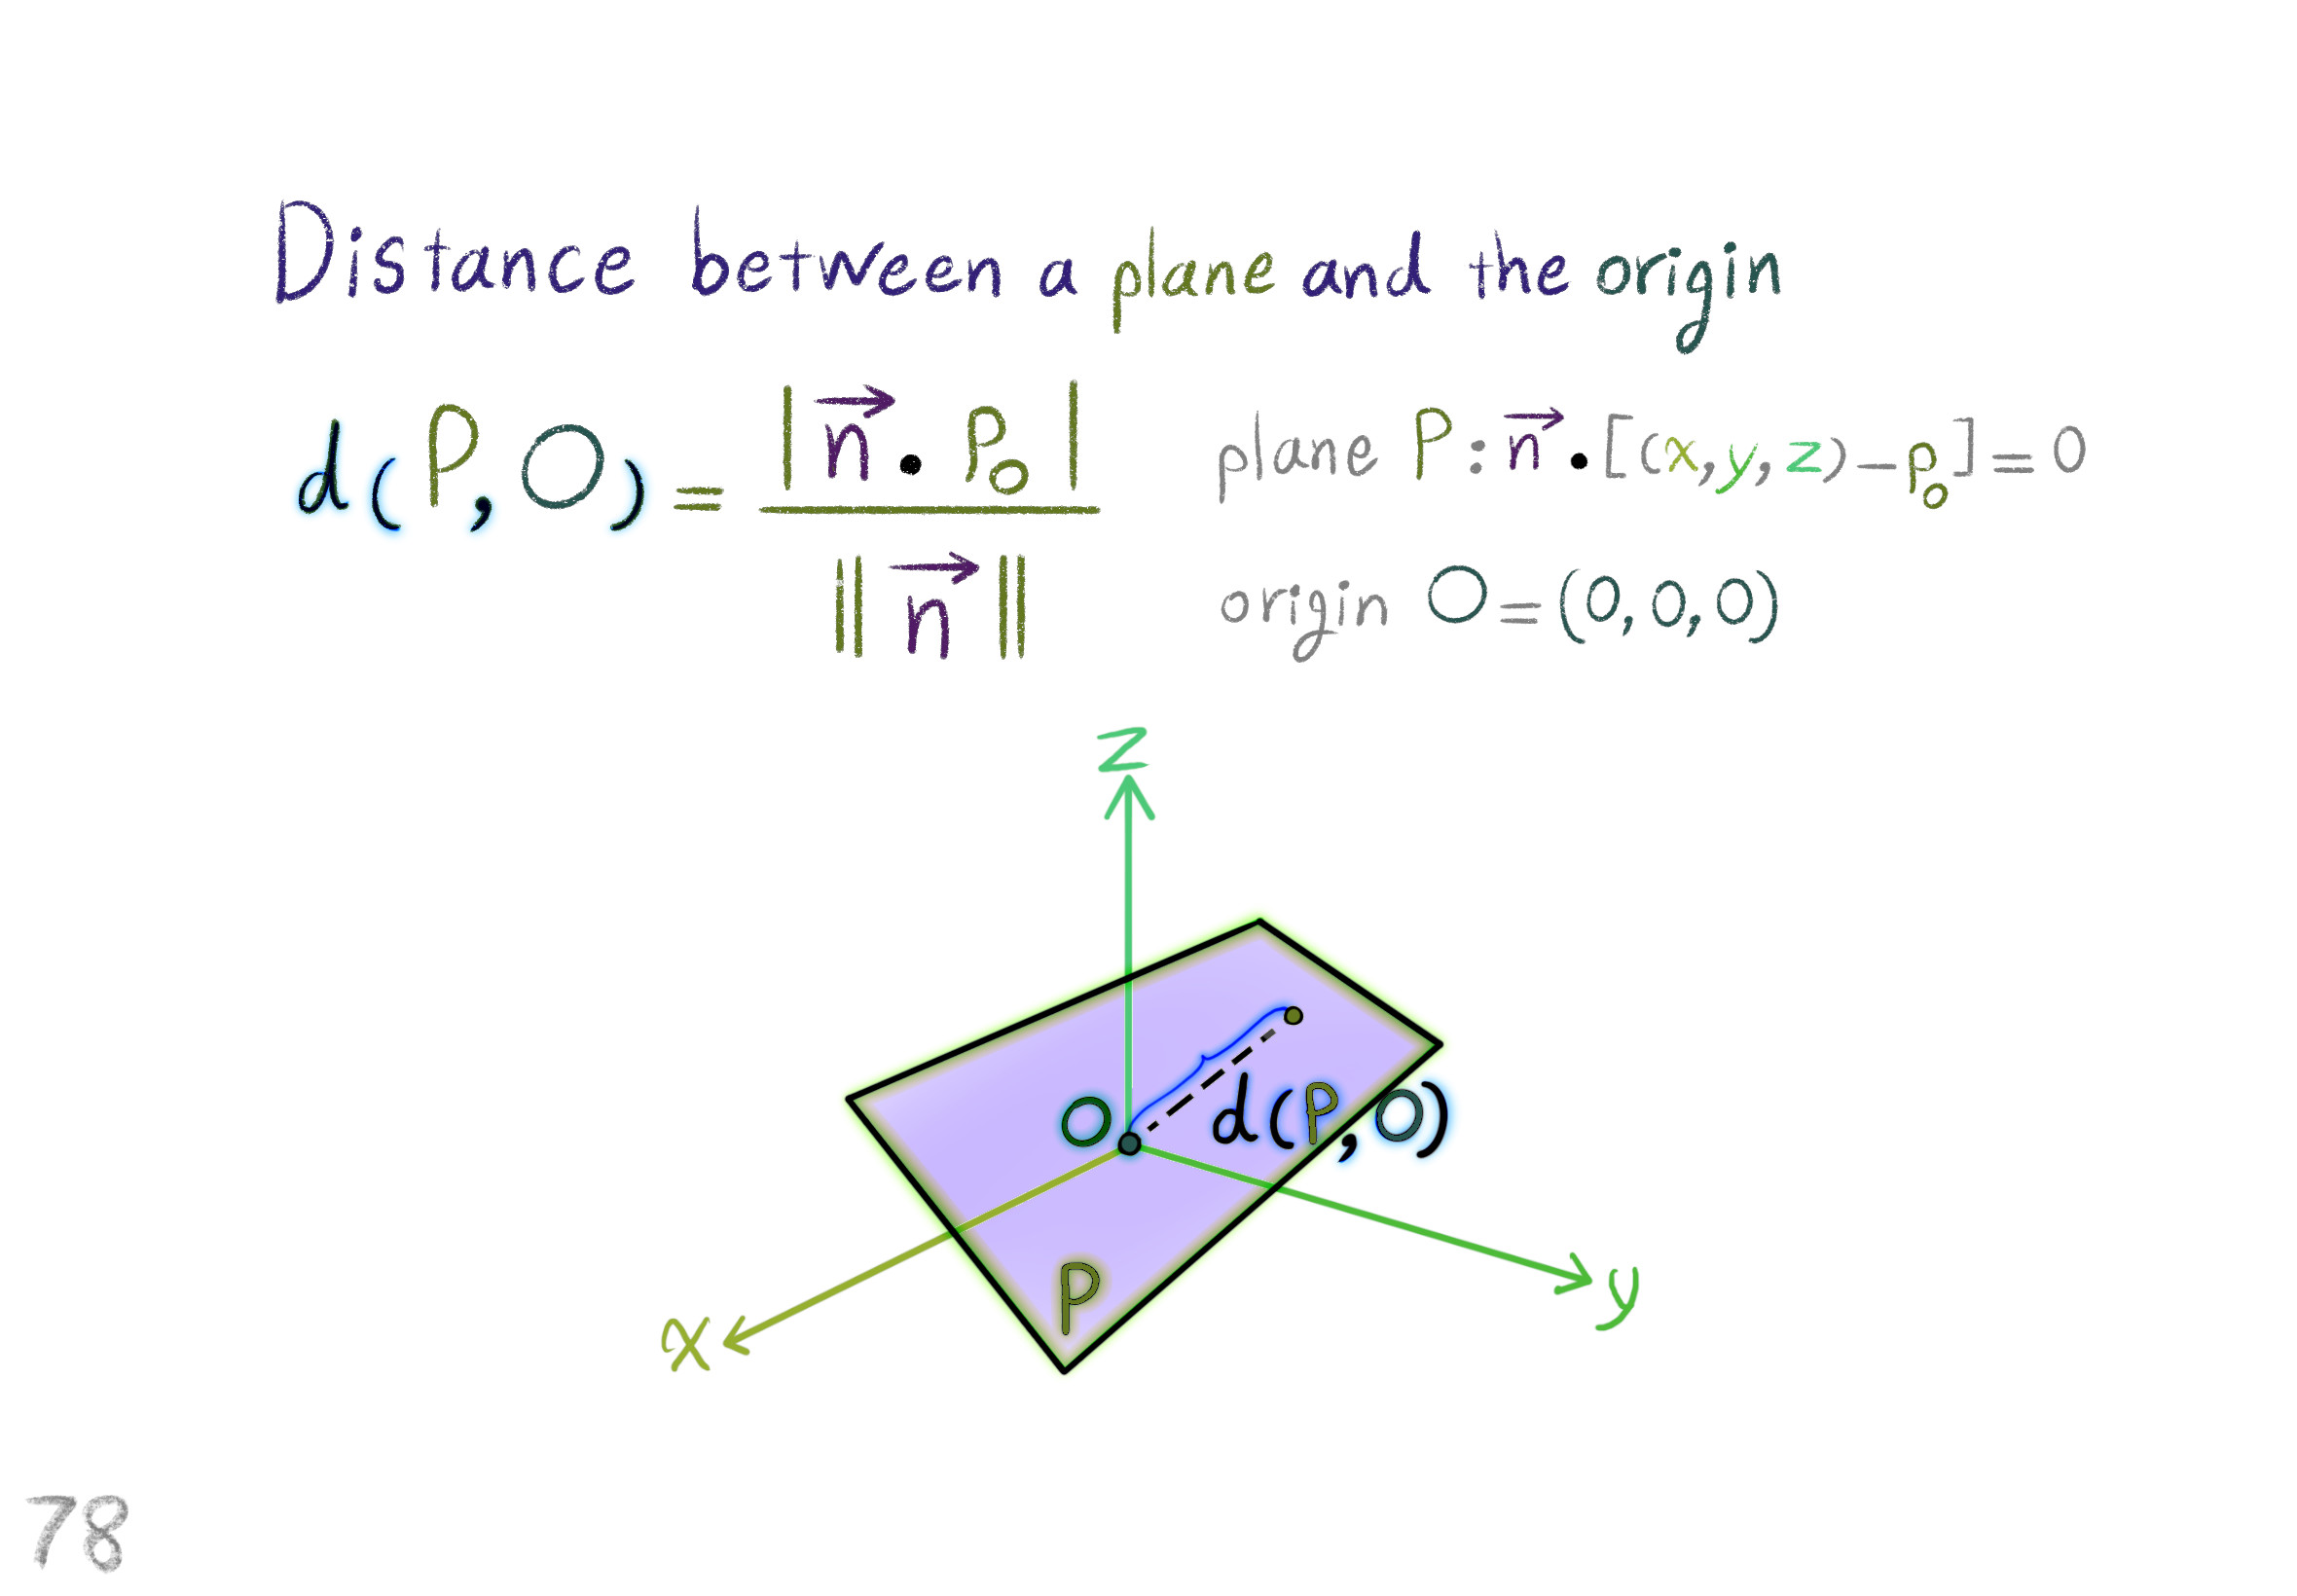 Distance between a plane and the origin
d(P,O) = |n⃗ · p₀| / ‖n⃗‖
plane P: n⃗ · [(x,y,z) − p₀] = 0
origin O = (0,0,0)
z
O
d(P,O)
P
x
y
78